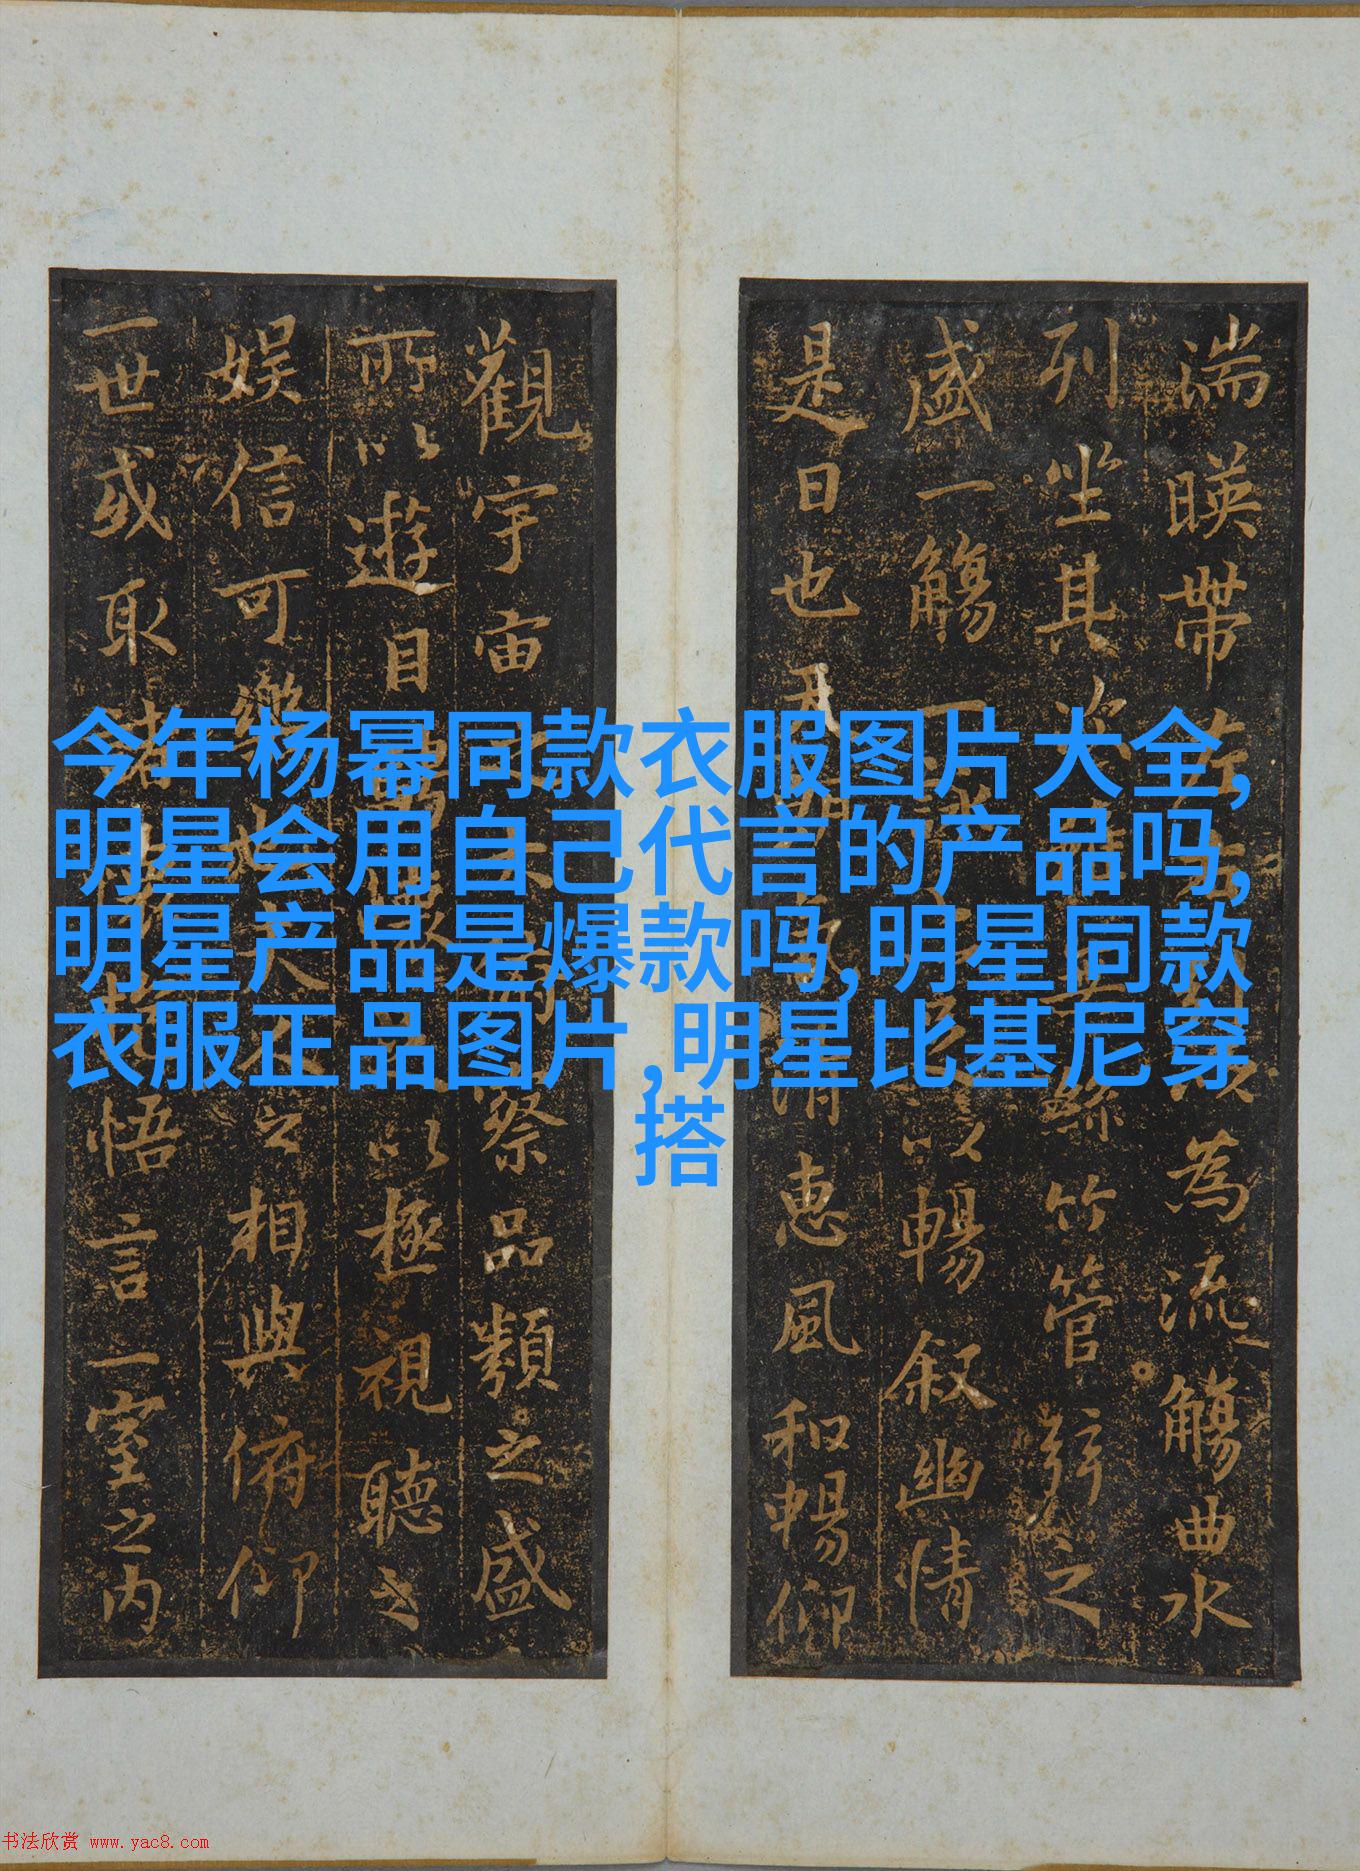 湍暎帶左右
為流觴曲水
列坐其次
絲竹管弦之
盛一觴一
以暢叙幽情
是日也天
清惠風和暢仰
觀宇宙
察品類之盛
所以遊目騁懷
以極視聽之
娱信可樂也夫人之相與俯仰
一世或取諸
悟言一室之内
今年杨幂同款衣服图片大全,
明星会用自己代言的产品吗,
明星产品是爆款吗,明星同款
衣服正品图片,明星比基尼穿
搭
书法欣赏 www.yac8.com